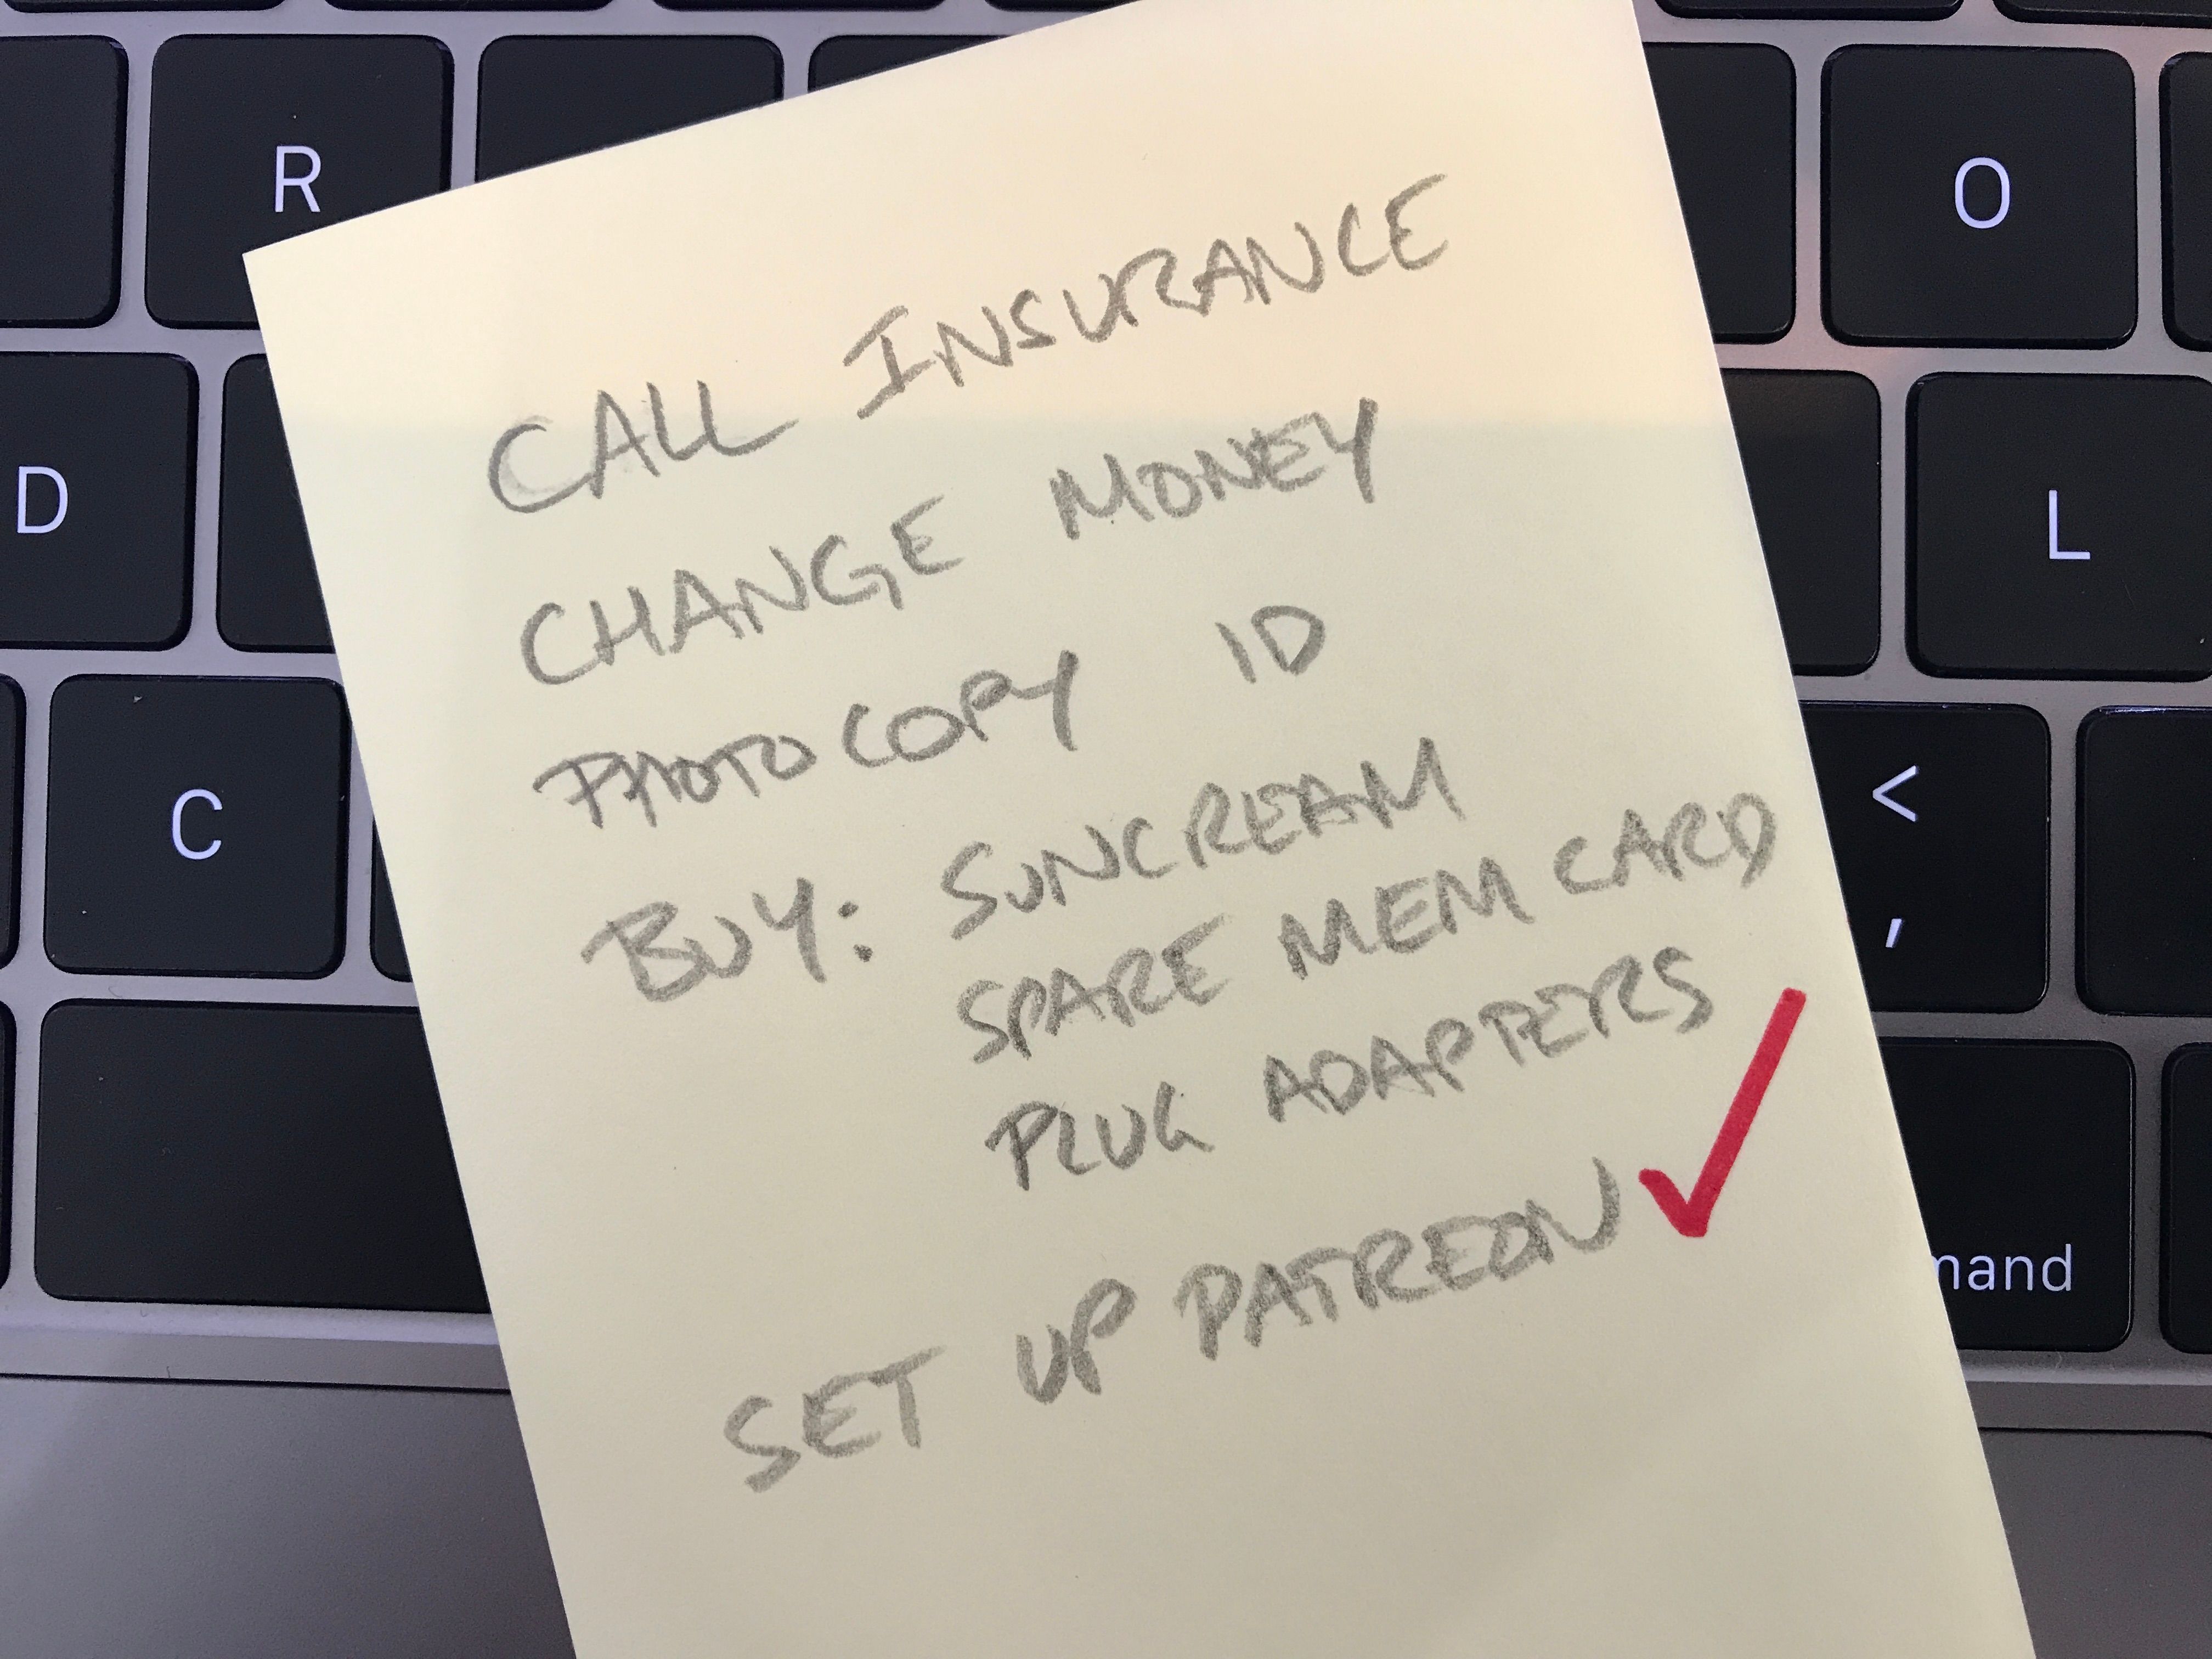 R
O
D
L
C
<
,
mand
CALL INSURANCE
CHANGE MONEY
PHOTOCOPY ID
BUY: SUNCREAM
SPARE MEM CARD
PLUG ADAPTERS
SET UP PATREON ✓